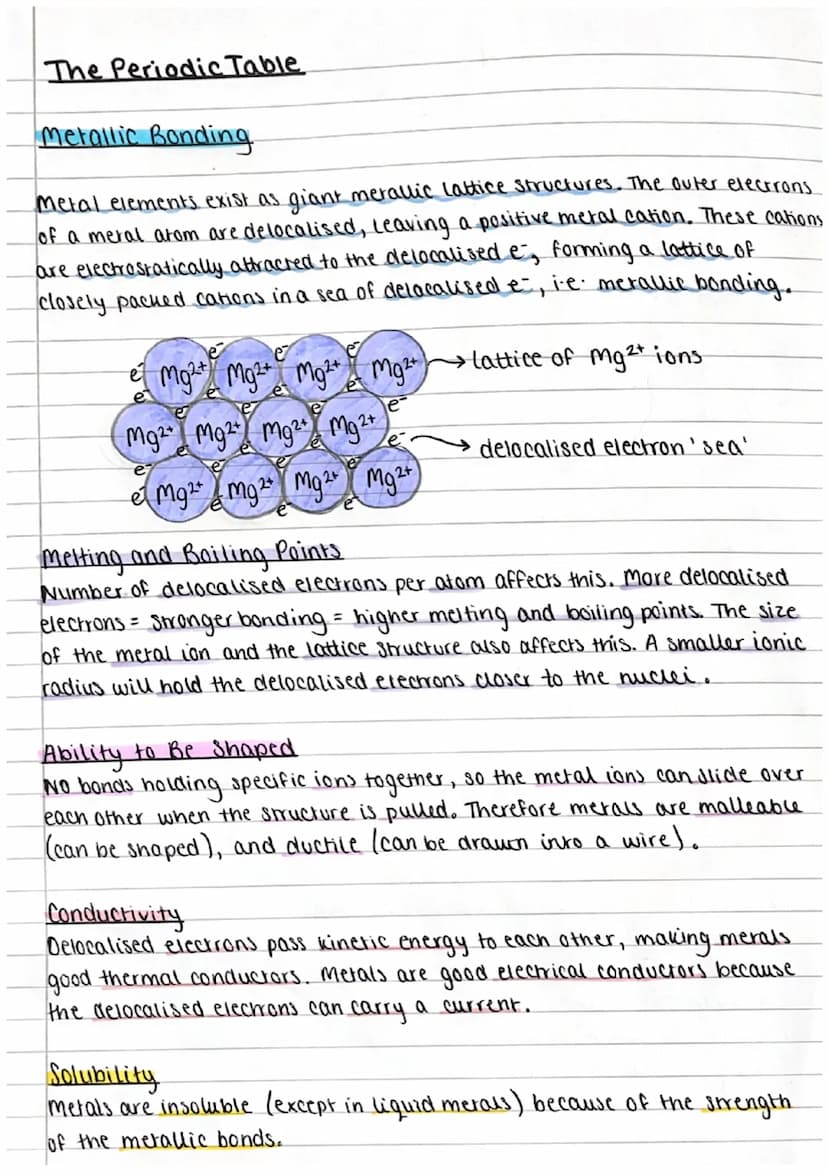 The Periodic Table
Metallic Bonding
Metal elements exist as giant metallic lattice structures. The outer electrons
of a metal atom are delocalised, leaving a positive metal cation. These cations
are electrostatically attracted to the delocalised e⁻, forming a lattice of
closely packed cations in a sea of delocalised e⁻, i.e. metallic bonding.
e⁻ e⁻ e⁻ e⁻
Mg²⁺ Mg²⁺ Mg²⁺ Mg²⁺ → lattice of Mg²⁺ ions
e⁻ e⁻ e⁻ e⁻
e⁻ e⁻ e⁻ e⁻
Mg²⁺ Mg²⁺ Mg²⁺ Mg²⁺
e⁻ e⁻ e⁻ e⁻ → delocalised electron 'sea'
e⁻ e⁻ e⁻ e⁻
e⁻ Mg²⁺ Mg²⁺ Mg²⁺ Mg²⁺
e⁻ e⁻ e⁻
Melting and Boiling Points
Number of delocalised electrons per atom affects this. More delocalised
electrons = stronger bonding = higher melting and boiling points. The size
of the metal ion and the lattice structure also affects this. A smaller ionic
radius will hold the delocalised electrons closer to the nuclei.
Ability to Be Shaped
No bonds holding specific ions together, so the metal ions can slide over
each other when the structure is pulled. Therefore metals are malleable
(can be shaped), and ductile (can be drawn into a wire).
Conductivity
Delocalised electrons pass kinetic energy to each other, making metals
good thermal conductors. Metals are good electrical conductors because
the delocalised electrons can carry a current.
Solubility
Metals are insoluble (except in liquid metals) because of the strength
of the metallic bonds.